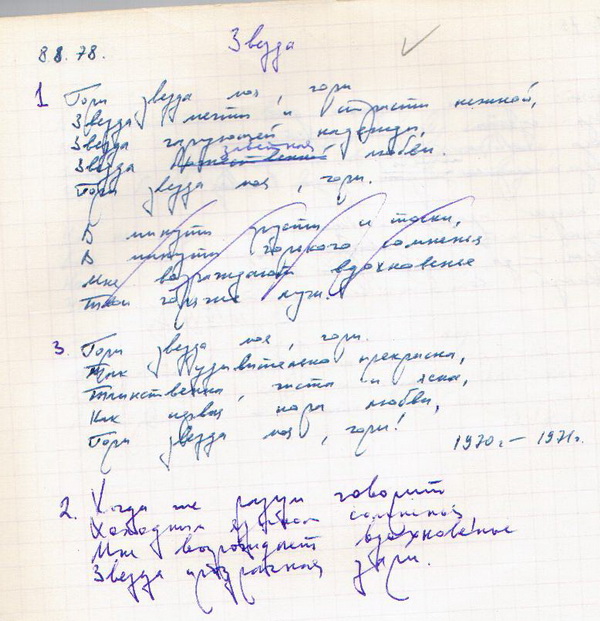 8.8.78.
Звезда
1 Гори звезда моя, гори
Звезда мечты и страсти нежной,
Звезда чарующей надежды,
заветная
Звезда любви.
Гори звезда моя, гори.
В минуты грусти и тоски,
В минуты горького сомненья
Мне возрождают вдохновенье
Твои горячие лучи.
3. Гори звезда моя, гори.
Так удивительно прекрасна,
Таинственна, чиста и ясна,
Как первая пора любви,
Гори звезда моя, гори!
1970г. – 1971г.
2. Когда же разум говорит
Холодным языком сомненья
Мне возрождает вдохновенье
Звезда призрачная зари.